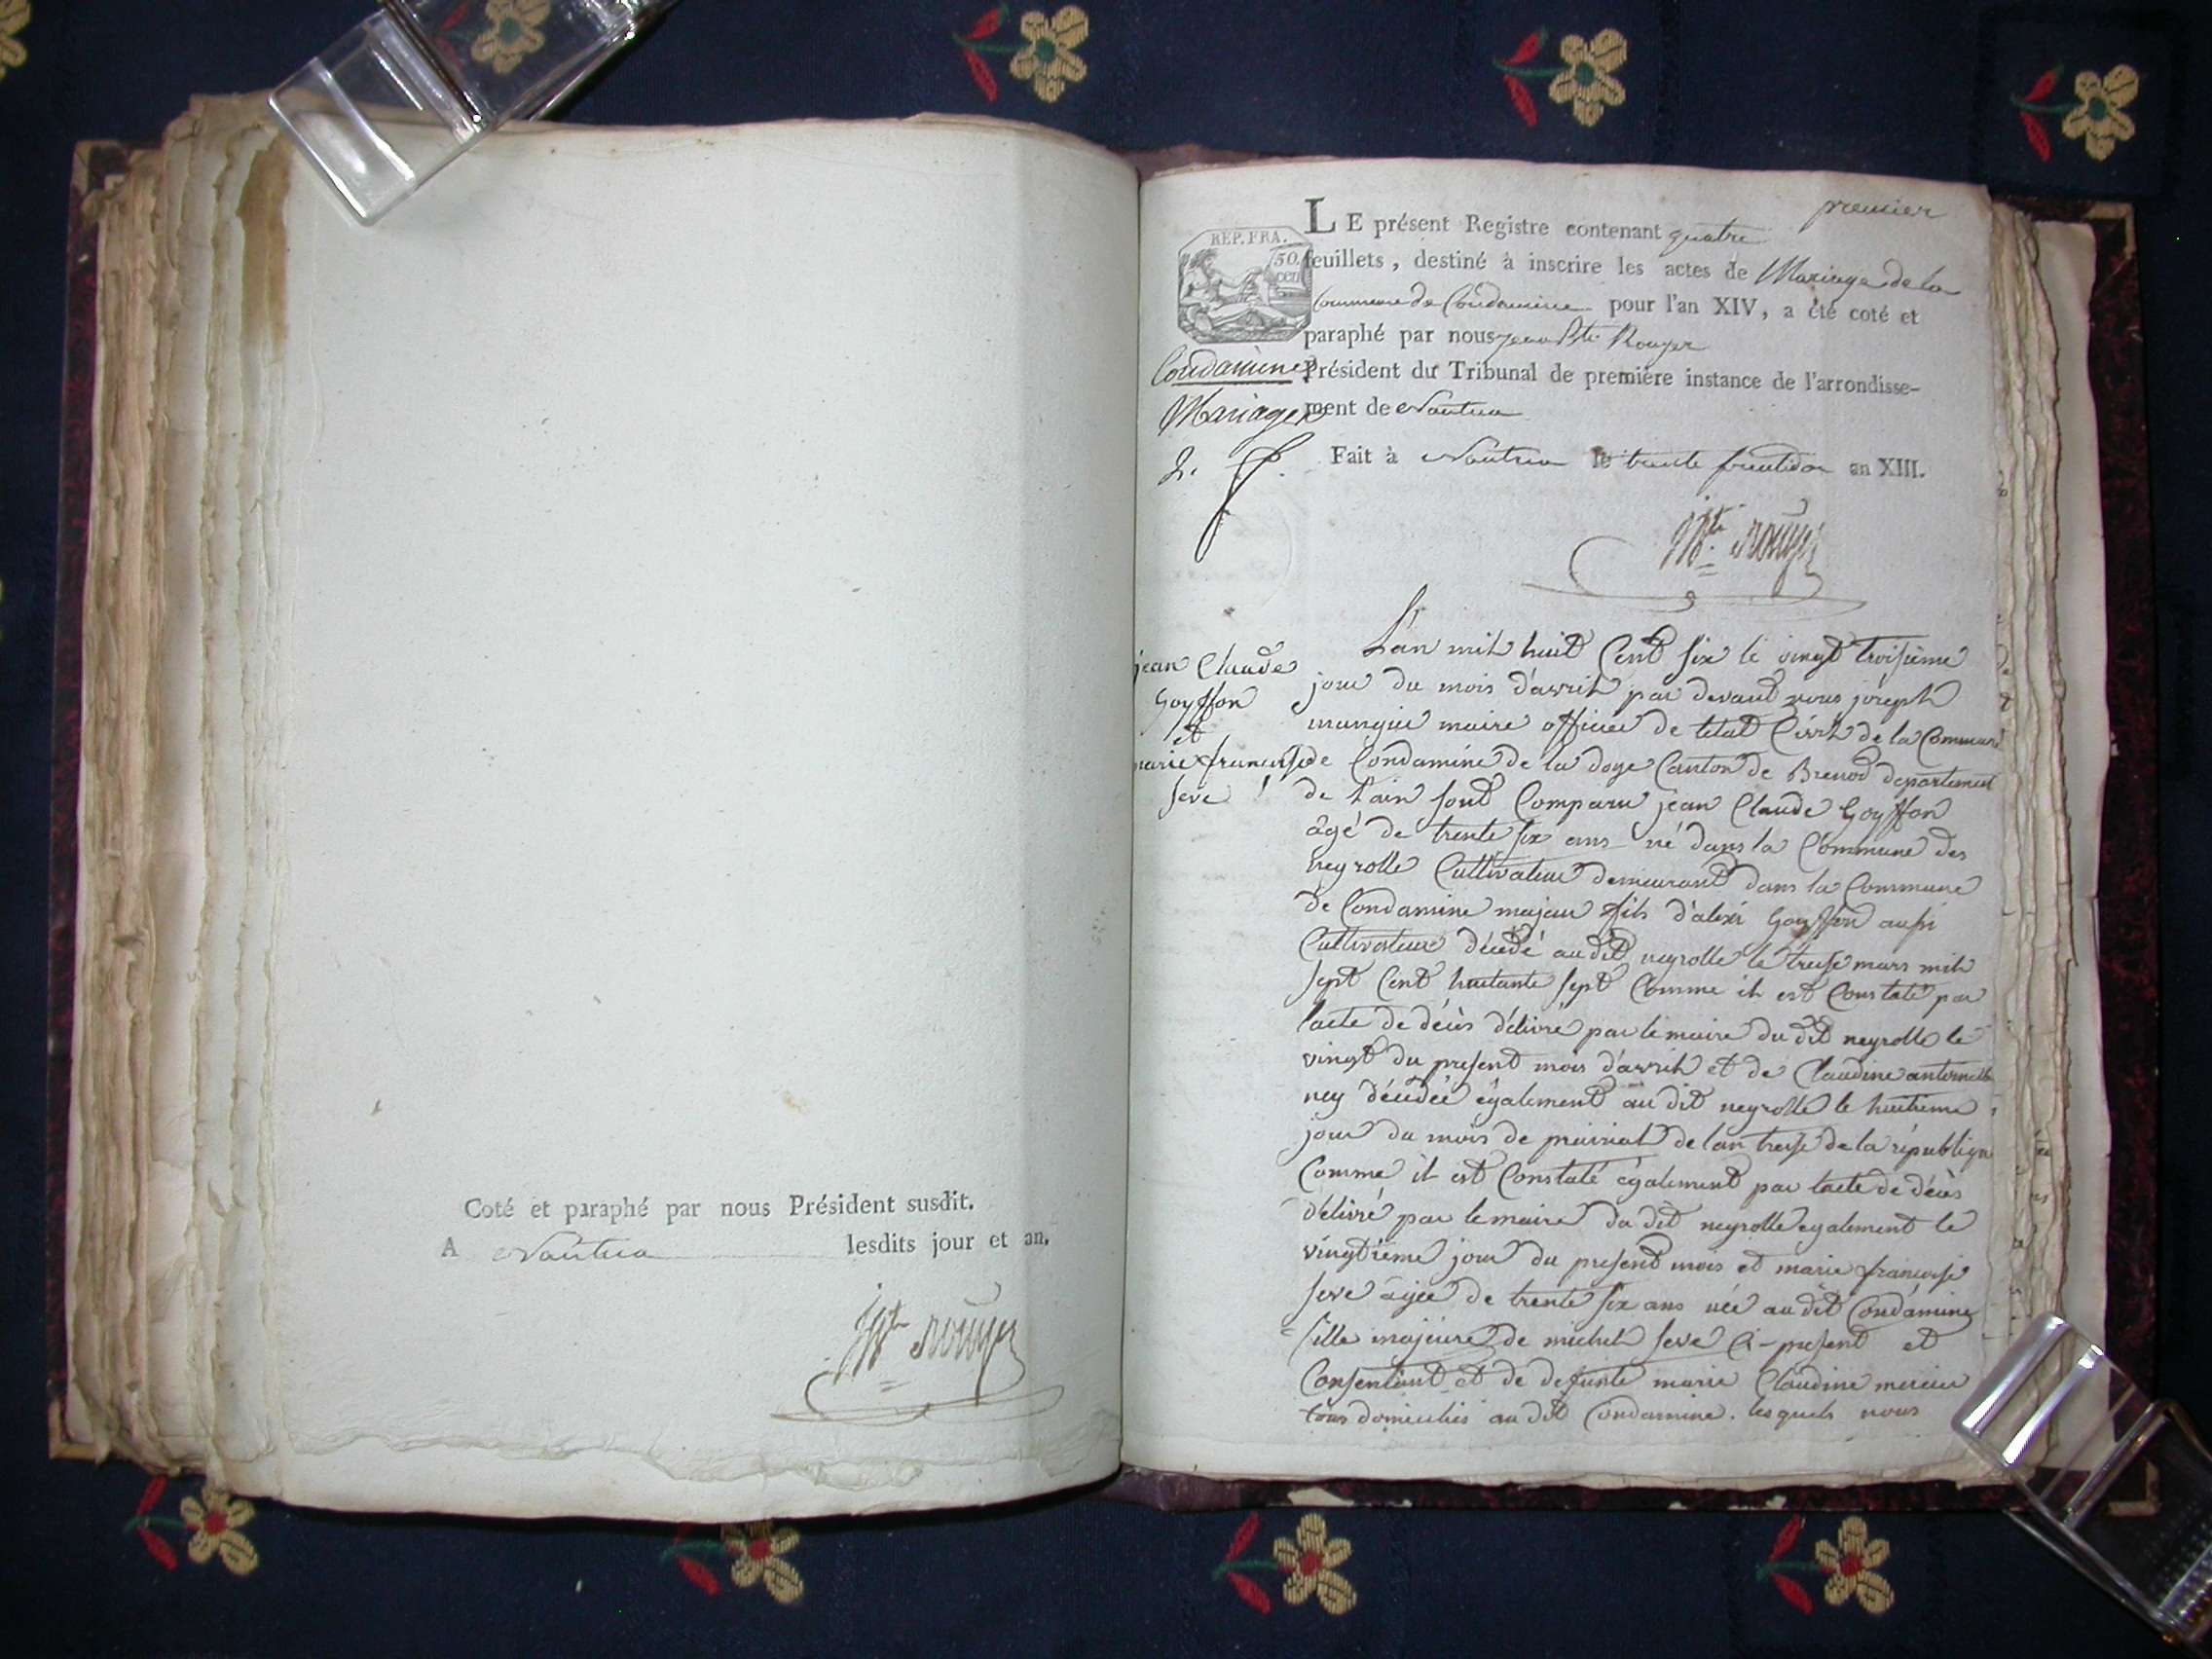 Coté et paraphé par nous Président susdit.
A Nantua lesdits jour et an.
JBte Rouyer
premier
REP. FRA.
50.
cen
LE présent Registre contenant quatre
feuillets, destiné à inscrire les actes de Mariage de la
Commune de Condamine pour l'an XIV, a été coté et
paraphé par nous jean Bte Rouyer
Président du Tribunal de première instance de l'arrondisse-
ment de Nantua
Condamine
Mariages
2.
Fait à Nantua le trente fructidor an XIII.
JBte Rouyer
jean Claude
Goyffon
et
marie francoise
seve
L'an mil huit Cent six le vingt troisième
jour du mois d'avril par devant nous joseph
mungier maire officier de letat Civil de la Commune
de Condamine de la doye Canton de Brenod departement
de l'ain sont Comparu jean Claude Goyffon
âgé de trente six ans né dans la Commune des
neyrolle Cultivateur demeurant dans la Commune
de Condamine majeur fils d'alexi Goyffon aussi
Cultivateur décédé au dit neyrolle le treise mars mil
sept Cent huitante sept Comme il est Constaté par
lacte de décès délivré par le maire du dit neyrolle le
vingt du present mois d'avril et de Claudine antoinette
ney décédée également au dit neyrolle le huitieme
jour du mois de prairial de lan treise de la république
Comme il est Constaté également par lacte de décès
délivré par le maire du dit neyrolle egalement le
vingtième jour du present mois et marie francoise
seve agée de trente six ans née au dit Condamine
fille majeure de michel seve Ci-present et
Consentant et de defunte marie Claudine mercier
tous domiciliés au dit Condamine. lesquels nous